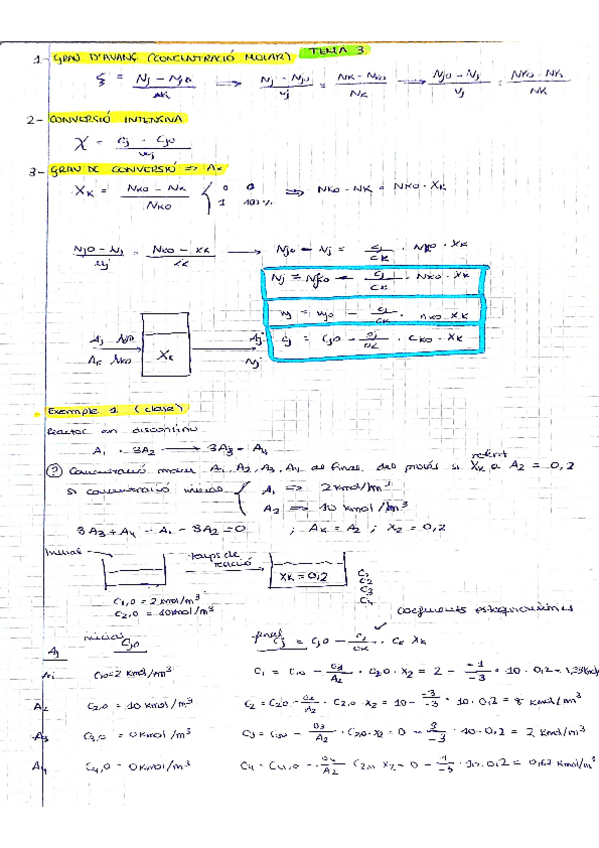 TEMA 3
1- GRAU D'AVANÇ (CONCENTRACIÓ MOLAR)
ξ = Nj - Nj0 / νk → Nj - Nj0 / νj = Nk - Nk0 / Nk → Nj0 - Nj / νj = Nk0 - Nk / Nk
2- CONVERSIÓ INTENSIVA
χ = cj - cj0 / νj
3- GRAU DE CONVERSIÓ => Ak
Xk = Nk0 - Nk / Nk0 { 0 0 => Nk0 - Nk = Nk0 · Xk
1 100%
Nj0 - Nj = · Nk0 · Xk
· Nk0 · Xk
nj = nj0 - · nk0 · Xk
cj = cj0 - · ck0 · Xk
Aj Nj0
Ak Nk0
Xk
Aj
Nj
Exemple 1 (clase)
Reactor en discontinu
A1 · 3A2 → 3A3 - A4
? Concentració molar A1, A2, A3, A4 al final del procés si Xk a A2 = 0,2
referit
si concentració inicial { A1 => 2 kmol/m³
A2 => 10 kmol/m³
3A3 + A4 - A1 - 3A2 = 0 ; Ak = A2 ; X2 = 0,2
Inicial
temps de reacció
Xk = 0,2
C1
C2
C3
C4
C1,0 = 2 kmol/m³
C2,0 = 10 kmol/m³
coeficients estequiomètrics
Aj
inicial Cj0
final Cj = Cj0 - · Ck Xk
A1 C1,0 = 2 kmol/m³ C1 = C1,0 - · C2,0 · X2 = 2 - -1/-3 · 10 · 0,2 =
A2 C2,0 = 10 kmol/m³ C2 = C2,0 - · C2,0 · X2 = 10 - -3/-3 · 10 · 0,2 = 8 kmol/m³
A3 C3,0 = 0 kmol/m³ C3 = C3,0 - · C2,0 · X2 = 0 - 3/-3 · 10 · 0,2 = 2 kmol/m³
A4 C4,0 = 0 kmol/m³ C4 = C4,0 - · C2,0 X2 = 0 - 1/-3 · 10 · 0,2 = 0,67 kmol/m³